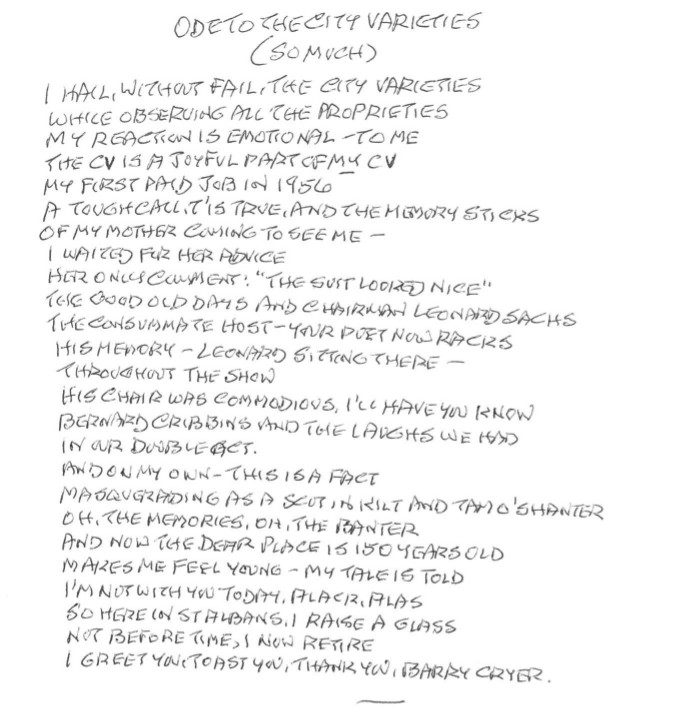 ODE TO THE CITY VARIETIES
(SO MUCH)
I HAIL, WITHOUT FAIL, THE CITY VARIETIES
WHILE OBSERVING ALL THE PROPRIETIES
MY REACTION IS EMOTIONAL - TO ME
THE CV IS A JOYFUL PART OF MY CV
MY FIRST PAID JOB IN 1956
A TOUGH CALL, 'T IS TRUE, AND THE MEMORY STICKS
OF MY MOTHER COMING TO SEE ME -
I WAITED FOR HER ADVICE
HER ONLY COMMENT: "THE SUIT LOOKED NICE"
THE GOOD OLD DAYS AND CHAIRMAN LEONARD SACHS
THE CONSUMMATE HOST - YOUR POET NOW RACKS
HIS MEMORY - LEONARD SITTING THERE -
THROUGHOUT THE SHOW
HIS CHAIR WAS COMMODIOUS, I'LL HAVE YOU KNOW
BERNARD CRIBBINS AND THE LAUGHS WE HAD
IN OUR DOUBLE ACT.
AND ON MY OWN - THIS IS A FACT
MASQUERADING AS A SCOT IN KILT AND TAM O'SHANTER
OH, THE MEMORIES, OH, THE BANTER
AND NOW THE DEAR PLACE IS 150 YEARS OLD
MAKES ME FEEL YOUNG - MY TALE IS TOLD
I'M NOT WITH YOU TODAY, ALACK, ALAS
SO HERE IN ST ALBANS, I RAISE A GLASS
NOT BEFORE TIME, I NOW RETIRE
I GREET YOU, TOAST YOU, THANK YOU, BARRY CRYER.